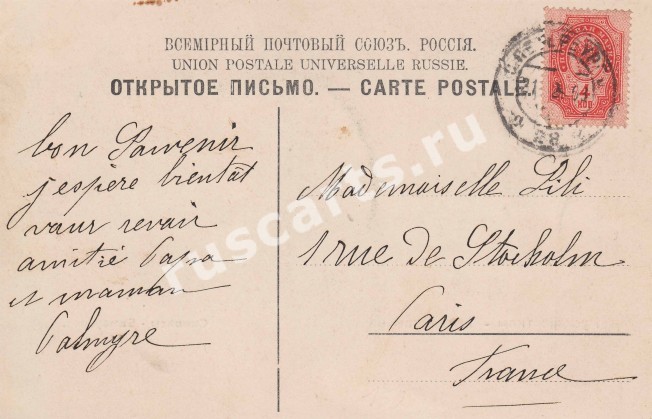 ВСЕМІРНЫЙ ПОЧТОВЫЙ СОЮЗЪ. РОССІЯ.
UNION POSTALE UNIVERSELLE RUSSIE.
ОТКРЫТОЕ ПИСЬМО. — CARTE POSTALE.
4
КОП
bon Souvenir
j'espère bientat
vaur revair
amitié Papa
et maman
Palmyre
Mademoiselle Lili
1 rue de Stockolm
Paris
France
ruscards.ru